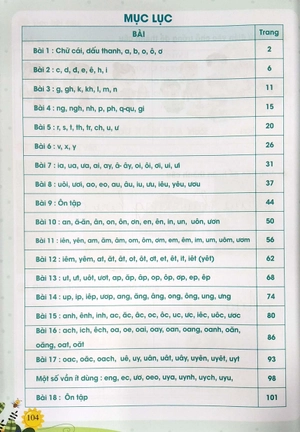 MỤC LỤC
BÀI Trang
Bài 1 : Chữ cái, dấu thanh, a, b, o, ô, ơ 2
Bài 2 : c, d, đ, e, ê, h, i 6
Bài 3 : g, gh, k, kh, l, m, n 11
Bài 4 : ng, ngh, nh, p, ph, q-qu, gi 15
Bài 5 : r, s, t, th, tr, ch, u, ư 20
Bài 6 : v, x, y 26
Bài 7 : ia, ua, ưa, ai, ay, â- ây, oi, ôi, ơi, ui, ưi 31
Bài 8 : uôi, ươi, ao, eo, au, âu, iu, ưu, iêu, yêu, ươu 37
Bài 9 : Ôn tập 44
Bài 10 : an, ă-ăn, ân, on, ôn, ơn, en, ên, in, un, uôn, ươn 50
Bài 11 : iên, yên, am, ăm, âm, om, ôm, ơm, em, êm, im, um, uôm, ươm 56
Bài 12 : iêm, yêm, at, ăt, ât, ot, ôt, ơt, et, êt, it, iêt (yêt) 62
Bài 13 : ut, ưt, uôt, ươt, ap, ăp, âp, op, ôp, ơp, ep, êp 68
Bài 14 : up, ip, iêp, ươp, ang, ăng, âng, ong, ông, ung, ưng 74
Bài 15 : anh, ênh, inh, ac, ăc, âc, oc, ôc, uc, ưc, iêc, uôc, ươc 80
Bài 16 : ach, ich, êch, oa, oe, oai, oay, oan, oang, oanh, oăn,
oăng, oat, oăt 86
Bài 17 : oac, oăc, oach, uê, uy, uân, uât, uây, uyên, uyêt, uyt 93
Một số vần ít dùng : eng, ec, ơơ, oeo, uya, uynh, uych, uyu, 98
Bài 18 : Ôn tập 101
104